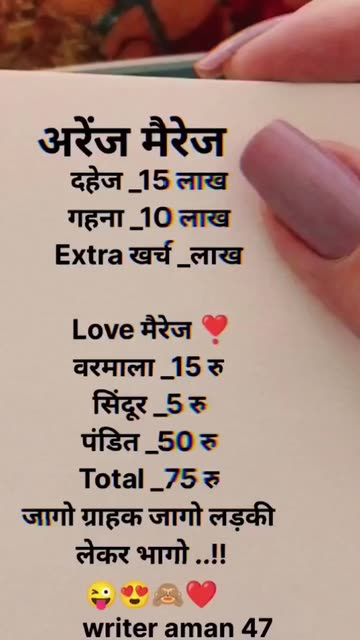 अरेंज मैरेज
दहेज _15 लाख
गहना _10 लाख
Extra खर्च _लाख
Love मैरेज ❣️
वरमाला _15 रु
सिंदूर _5 रु
पंडित _50 रु
Total _75 रु
जागो ग्राहक जागो लड़की
लेकर भागो ..!!
😜😍🙈❤️
writer aman 47